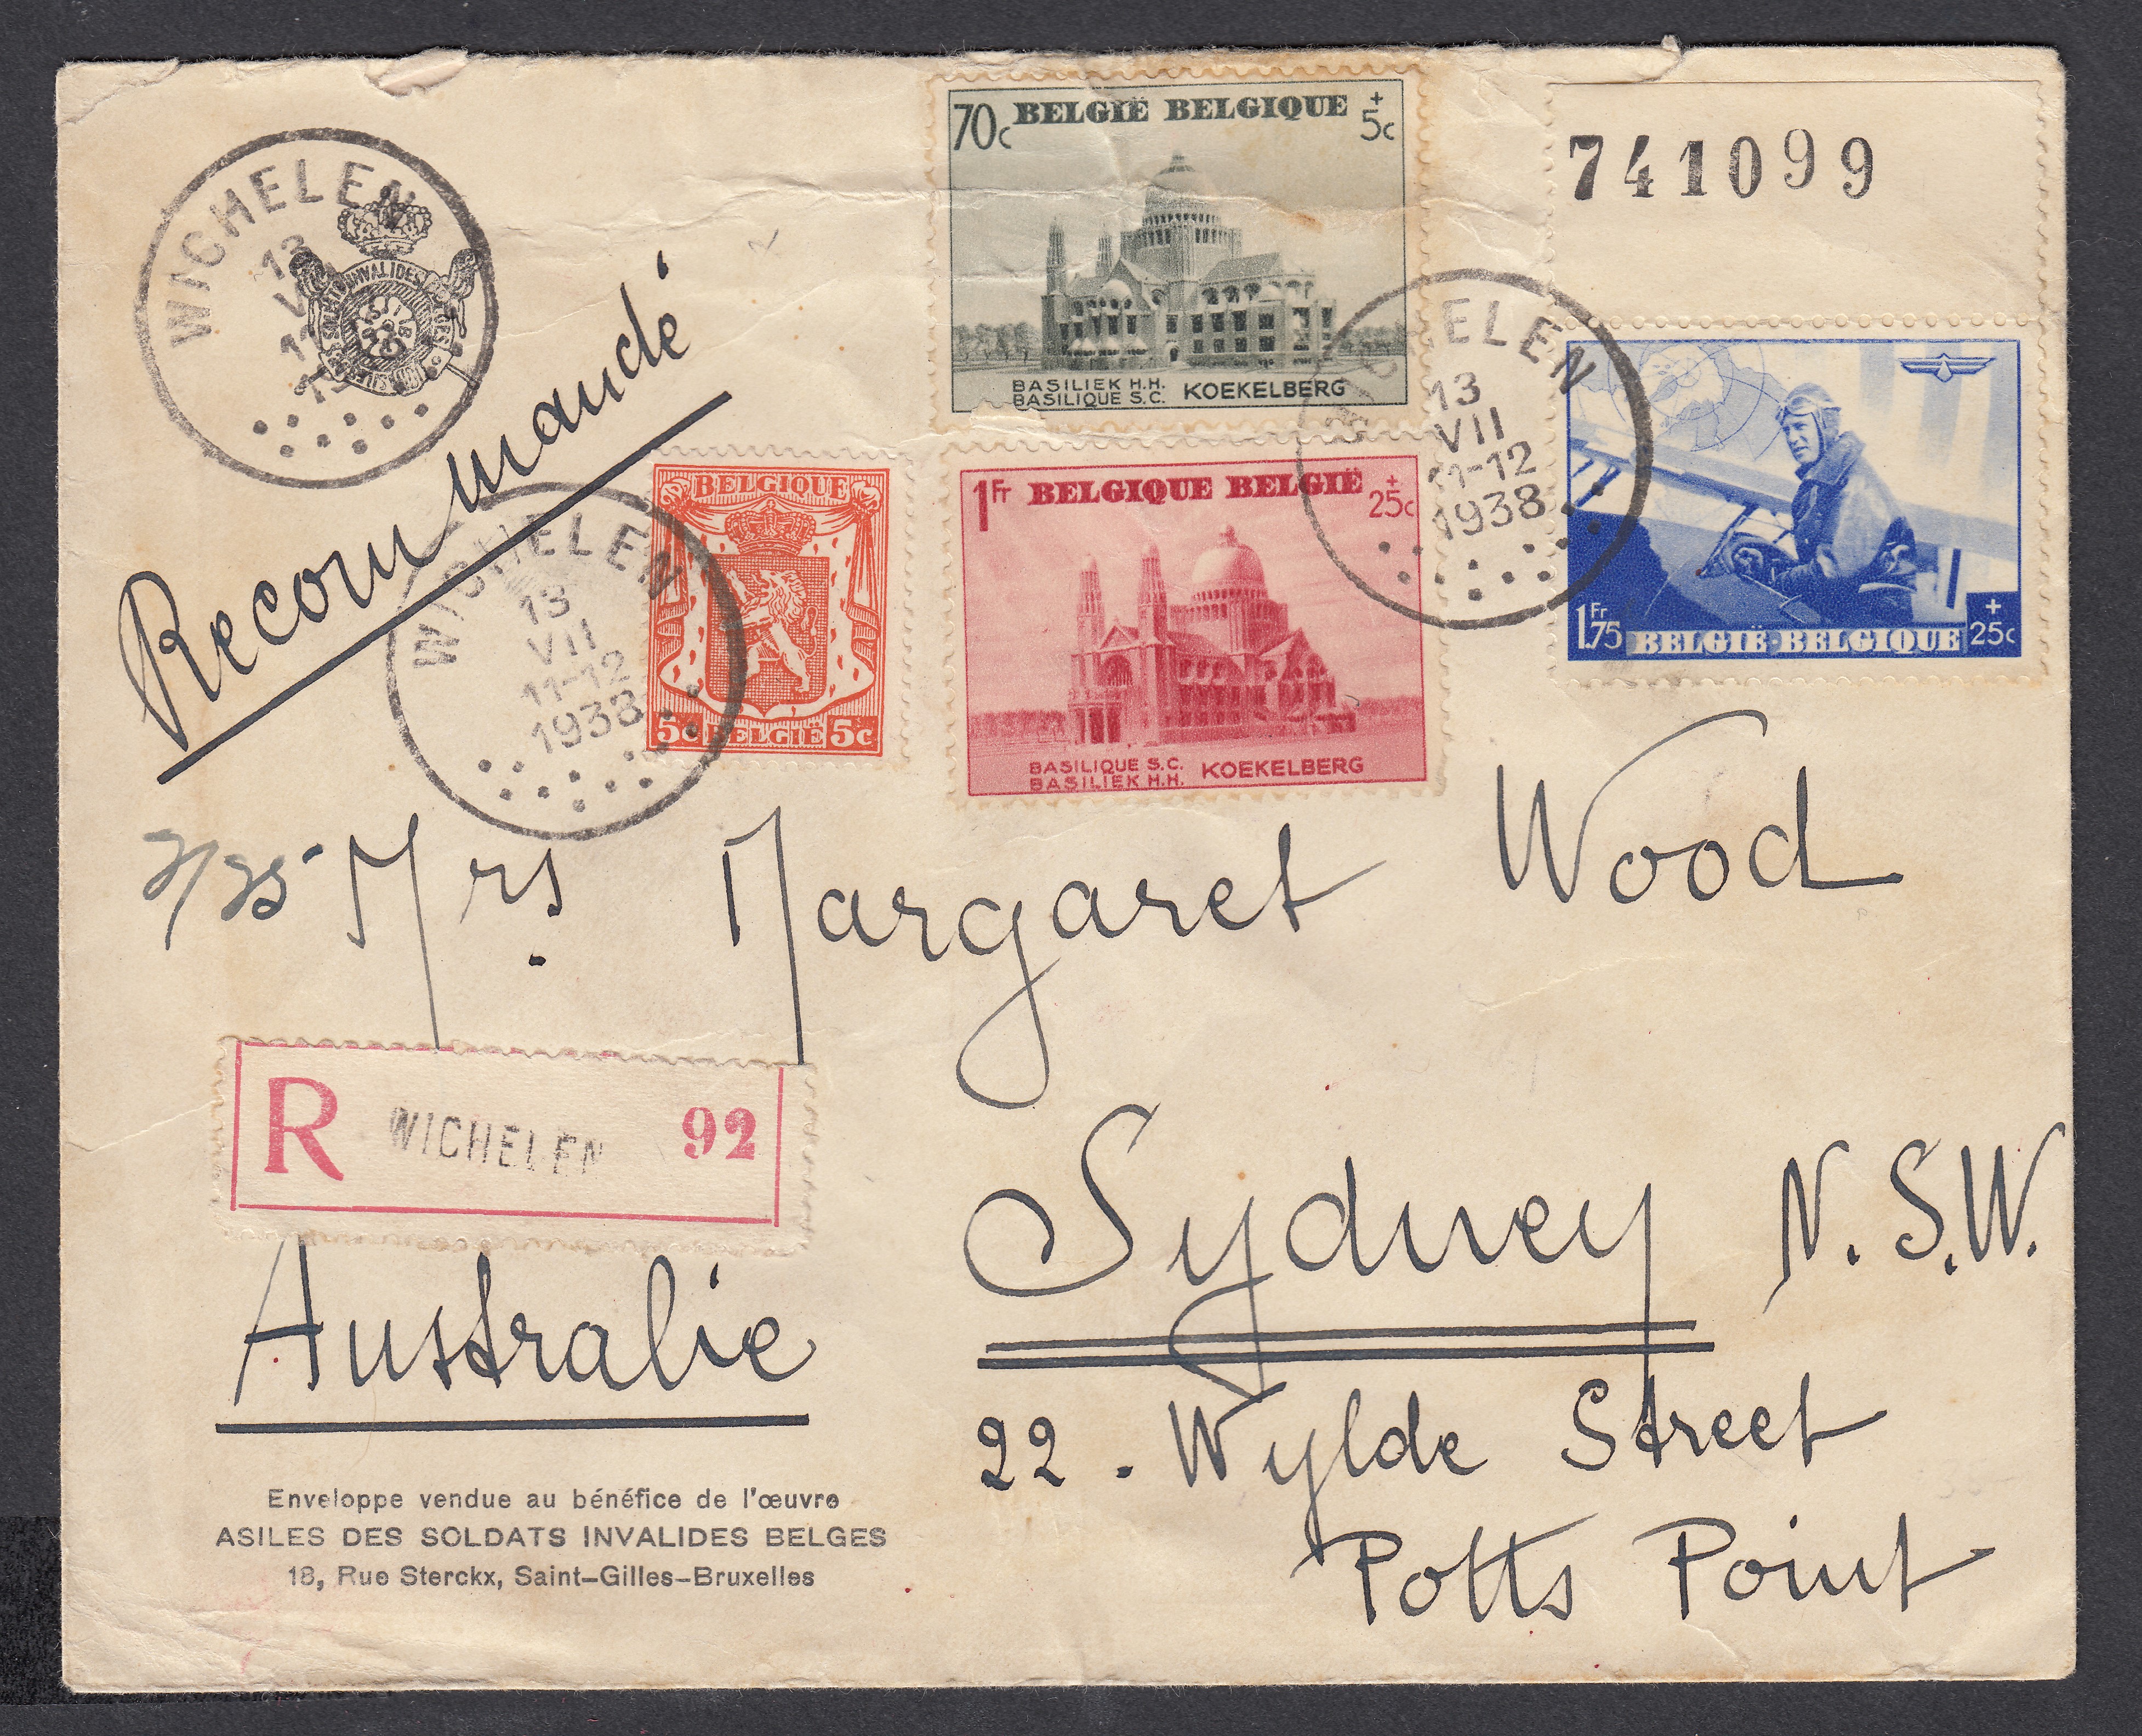 WICHELEN
13
INVALIDES
Recommandé
WICHELEN
13
VII
11-12
1938
BELGIQUE
5c BELGIË 5c
70c BELGIË BELGIQUE + 5c
BASILIEK H.H.
BASILIQUE S.C. KOEKELBERG
1Fr BELGIQUE BELGIË + 25c
BASILIQUE S.C.
BASILIEK H.H. KOEKELBERG
ELEN
13
VII
11-12
1938
741099
1Fr75 BELGIË-BELGIQUE + 25c
Mrs. Margaret Wood
R WICHELEN 92
Sydney N.S.W.
Australie
22. Wylde Street
Potts Point
Enveloppe vendue au bénéfice de l'œuvre
ASILES DES SOLDATS INVALIDES BELGES
18, Rue Sterckx, Saint-Gilles-Bruxelles